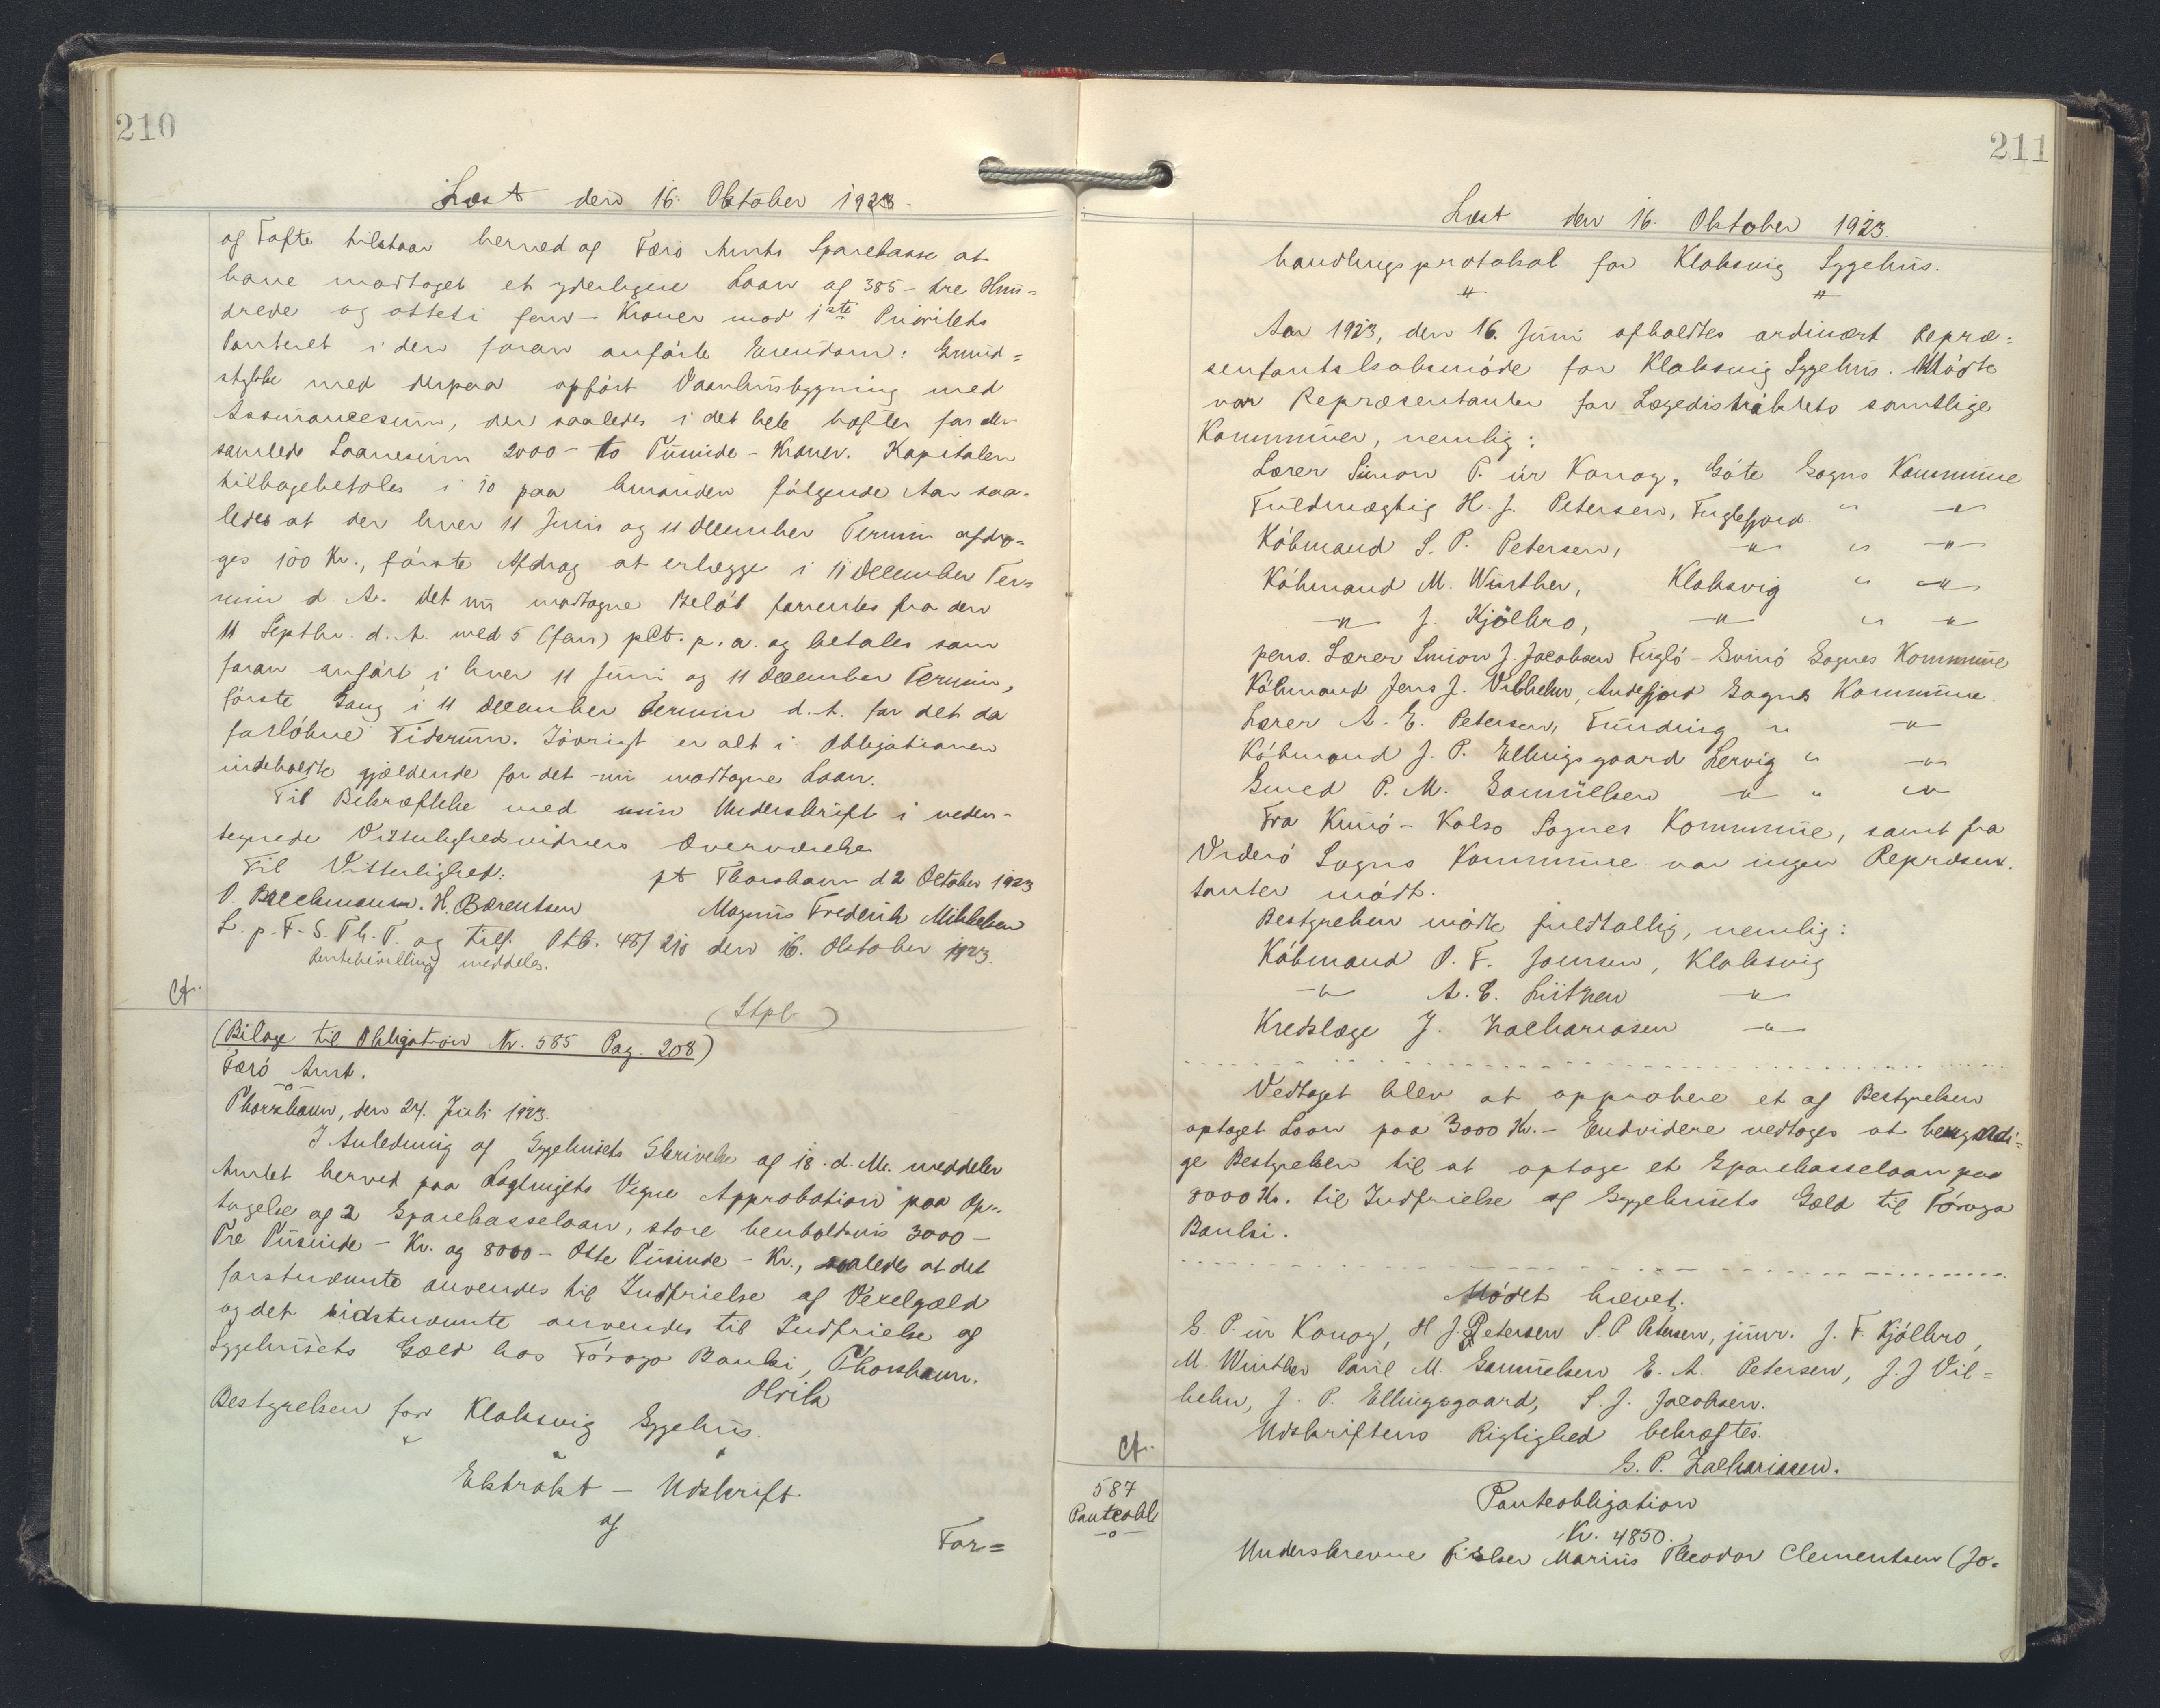 210
Læst den 16. Oktober 1923.
af Tofte tilstaar herved af Færø Amts Sparekasse at
have modtaget et yderligere Laan af 385 - tre Hun=
drede og otteti fem - Kroner mod 1ste Prioritets
Panteret i den foran anførte Ejendom: Grund=
stykke med derpaa opført Vaanhusbygning med
Assurancesum, der saaledes i det hele hæfter for den
samlede Laanesum 2000 - to Tusinde - Kroner. Kapitalen
tilbagebetales i 10 paa hinanden følgende Aar saa-
ledes at der hver 11 Juni og 11 December Termin afdra-
ges 100 Kr., første Afdrag at erlægge i 11 December Ter=
min d. A. Det nu modtagne Beløb forrentes fra den
11 Septbr. d. A. med 5 (fem) pCt. p. a. og betales som
foran anført i hver 11 Juni og 11 December Termin,
første Gang i 11 December Termin d. A. for det da
forløbne Tidsrum. Iøvrigt er alt i Obligationen
indeholdte gjældende for det nu modtagne Laan.
Til Bekræftelse med min Underskrift i neden-
tegnede Vitterlighedsvidners Overværelse
Til Vitterlighed: pt Thorshavn d 2 October 1923
O. Brechmann. H. Bærentsen Magnus Frederik Mikkelsen
L. p. F. S. Th. T. og tilf. Ptb. 48/210 den 16. Oktober 1923.
Rentebevilling meddeles.
Ct.
(Stpl. )
(Bilag til Obligation Nr. 585 Pag. 208)
Færø Amt.
-o-
Thorshavn, den 24. Juli 1923.
I Anledning af Sygehusets Skrivelse af 18. d. M. meddeler
Amtet herved paa Lagtingets Vegne Approbation paa Op-
tagelse af 2 Sparekasselaan, store henholdsvis 3000 -
Tre Tusinde - Kr. og 8000 - Otte Tusinde - Kr., saaledes at det
førstnævnte anvendes til Indfrielse af Vexelgæld
og det sidstnævnte anvendes til Indfrielse af
Sygehusets Gæld hos Føroya Banki, Thorshavn.
Olrik
Bestyrelsen for Klaksvig Sygehus.
Ekstrakt - Udskrift
af
For=
211
Læst den 16. Oktober 1923.
handlingsprotokol for Klaksvig Sygehus.
" "
Aar 1923, den 16. Juni afholdtes ordinært Repræ=
sentantskabsmøde for Klaksvig Sygehus. Mødte
var Repræsentanter for Lægedistriktets samtlige
Kommuner, nemlig:
Lærer Simon P. úr Konoy, Gøte Sogns Kommune
Fuldmægtig H. J. Petersen, Fuglefjord " "
Købmand S. P. Petersen, " " "
Købmand M. Winther, Klaksvig " "
" J. Kjølbro, " " "
pens. Lærer Simon J. Jacobsen Fuglø - Svinø Sognes Kommune
Købmand Jens J. Vilhelm, Andefjord Sogns Kommune.
Lærer A. E. Petersen, Funding " "
Købmand J. P. Ellingsgaard Lervig " "
Smed P. M. Samuelsen " " "
Fra Kunø - Kalsø Sognes Kommune, samt fra
Viderø Sogns Kommune var ingen Repræsen.
tanter mødt.
Bestyrelsen mødte fuldtallig, nemlig:
Købmand O. F. Joensen, Klaksvig
" A. C. Lützen "
Kredslæge J. Zachariasen "
Vedtaget blev at approbere et af Bestyrelsen
optaget Laan paa 3000 Kr. - Endvidere vedtoges at bemyndi=
ge Bestyrelsen til at optage et Sparekasselaan paa
8000 Kr. til Indfrielse af Sygehusets Gæld til Føroya
Banki.
Mødet hævet.
S. P. úr Konoy, H J. Petersen S. P Petersen, junr. J. F. Kjølbro,
M. Winther Poul M. Samuelsen E. A. Petersen, J. J. Vil=
helm, J. P. Ellingsgaard, S. J. Jacobsen.
Udskriftens Rigtighed bekræftes.
S. P. Zachariasen.
Ct.
587
Panteobl
-o-
Panteobligation
Kr. 4850.
Underskrevne Fisker Marius Theodor Clementsen (Jo=